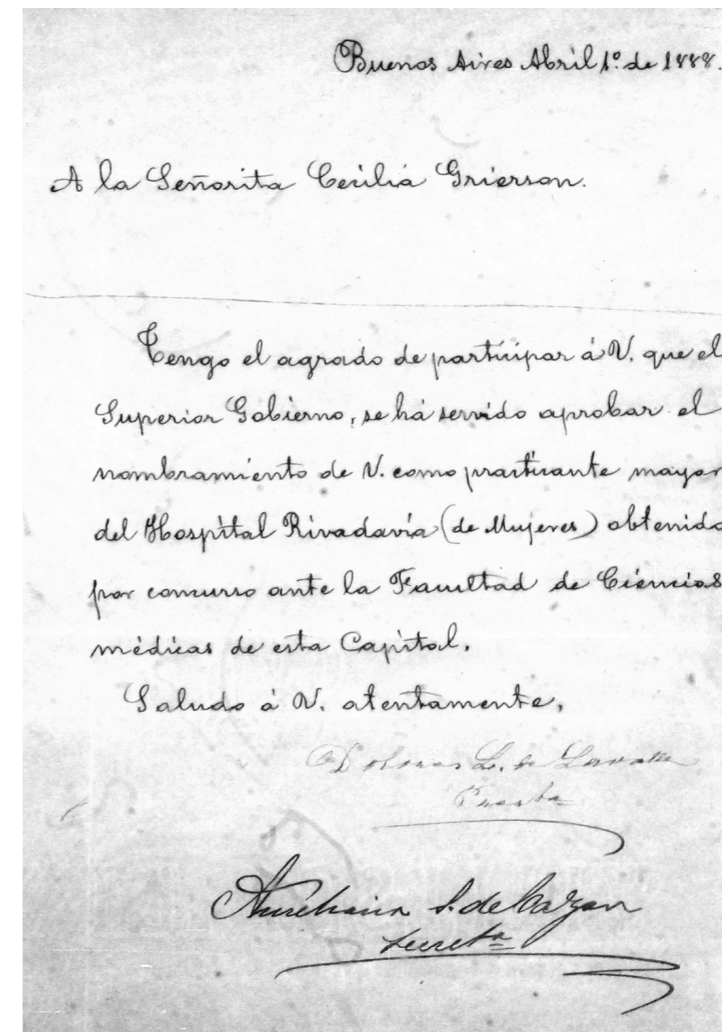 Buenos Aires Abril 1º de 1888.
A la Señorita Cecilia Grierson.
Tengo el agrado de participar á V. que el
Superior Gobierno, se há servido aprobar el
nombramiento de V. como practicante mayor
del Hospital Rivadavia (de Mujeres) obtenido
por concurso ante la Facultad de Ciencias
médicas de esta Capital.
Saludo á V. atentamente,
Dolores L. de Lavalle
Presta
Aureliana S. de Cazon
Secreta